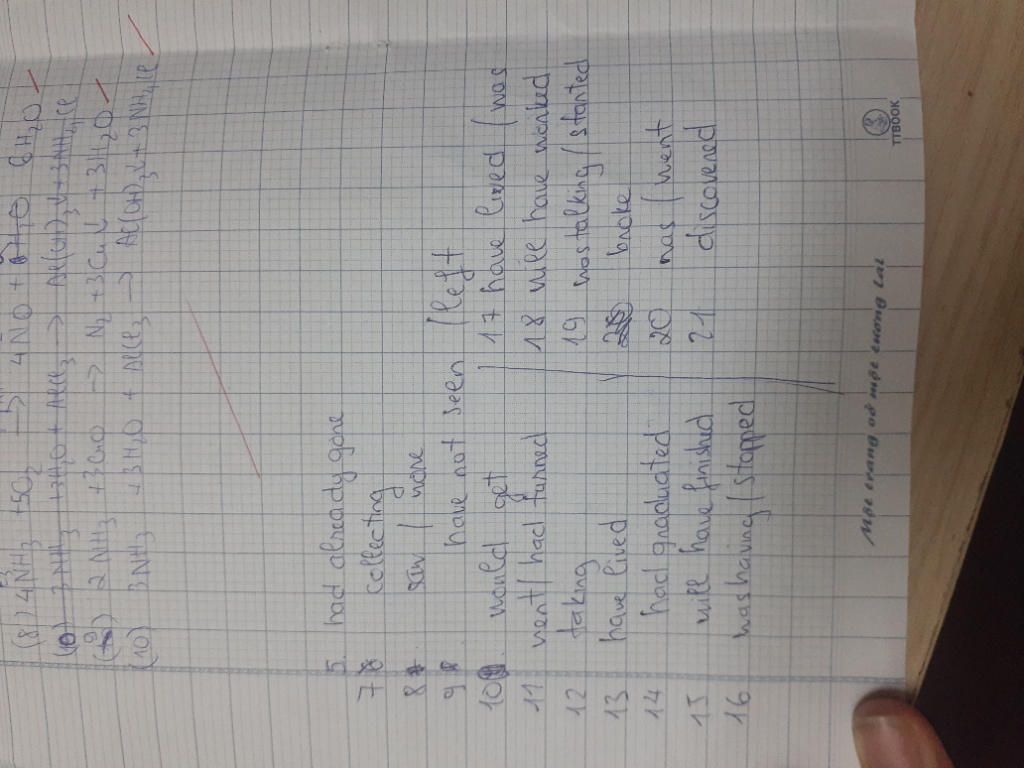 (8) 4NH₃ +5O₂ → 4NO + 6H₂O
3NH₃ +3H₂O + AlCl₃ → Al(OH)₃↓+3NH₄Cl
(9) 2NH₃ +3CuO → N₂ +3Cu↓ + 3H₂O
(10) 3NH₃ +3H₂O + AlCl₃ → Al(OH)₃↓+3NH₄Cl
5. had already gone
7 collecting
8 saw / wore
9 have not seen / left
10 would get
11 went / had turned
12 taking
13 have lived
14 had graduated
15 will have finished
16 was having / stopped
17 have lived / was
18 will have worked
19 was talking / started
broke
20 was / went
21 discovered
TTBOOK